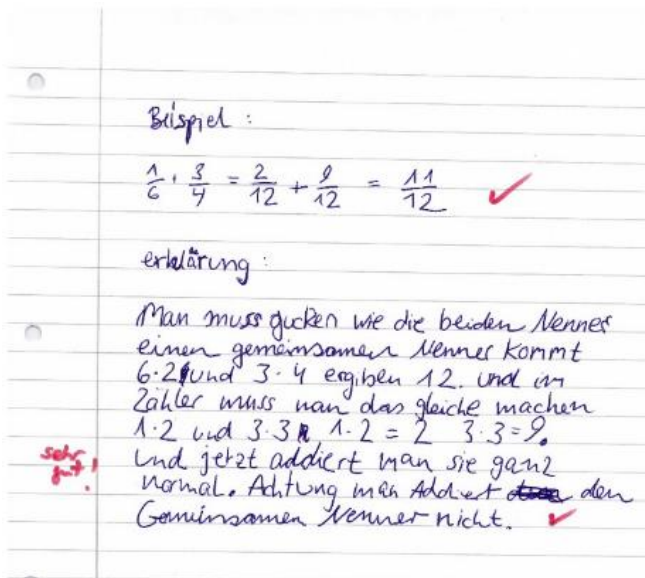 Beispiel :
1/6 + 3/4 = 2/12 + 9/12 = 11/12 ✓
erklärung :
Man muss gucken wie die beiden Nenner
einen gemeinsamen Nenner kommt
6·2 und 3·4 ergiben 12. und im
Zähler muss man das gleiche machen
1·2 und 3·3 1·2 = 2 3·3 = 9.
sehr gut!
und jetzt addiert man sie ganz
normal. Achtung man Addiert den
Gemeinsamen Nenner nicht. ✓